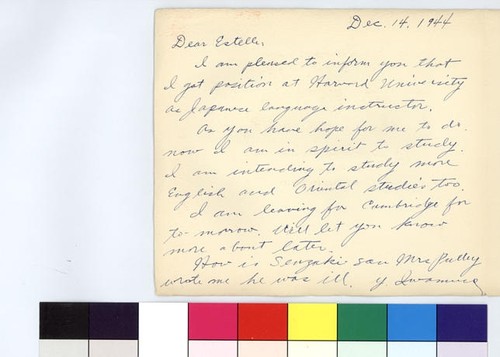 Dec. 14, 1944
Dear Estelle,
I am pleased to inform you that
I got position at Harvard University
as Japanese language instructor.
As you have hope for me to do.
now I am in spirit to study.
I am intending to study more
English and Oriental studies too.
I am leaving for Cambridge for
to-morrow. Will let you know
more about later.
How is Senzaki san Mrs
wrote me he was ill. y